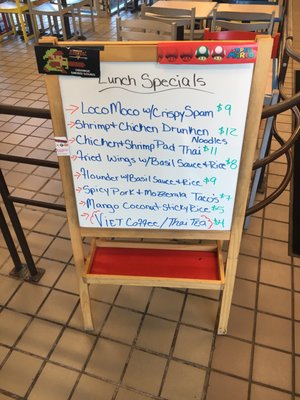 Lunch Specials
→ Loco Moco w/ Crispy Spam $9
→ Shrimp & Chicken Drunken Noodles $12
→ Chicken & Shrimp Pad Thai $11
→ Fried Wings w/ Basil Sauce & Rice $8
→ Flounder w/ Basil Sauce & Rice $9
→ Spicy Pork & Mozzarella Tacos $7
→ Mango Coconut Sticky Rice $5
→ (Viet Coffee / Thai Tea) $4